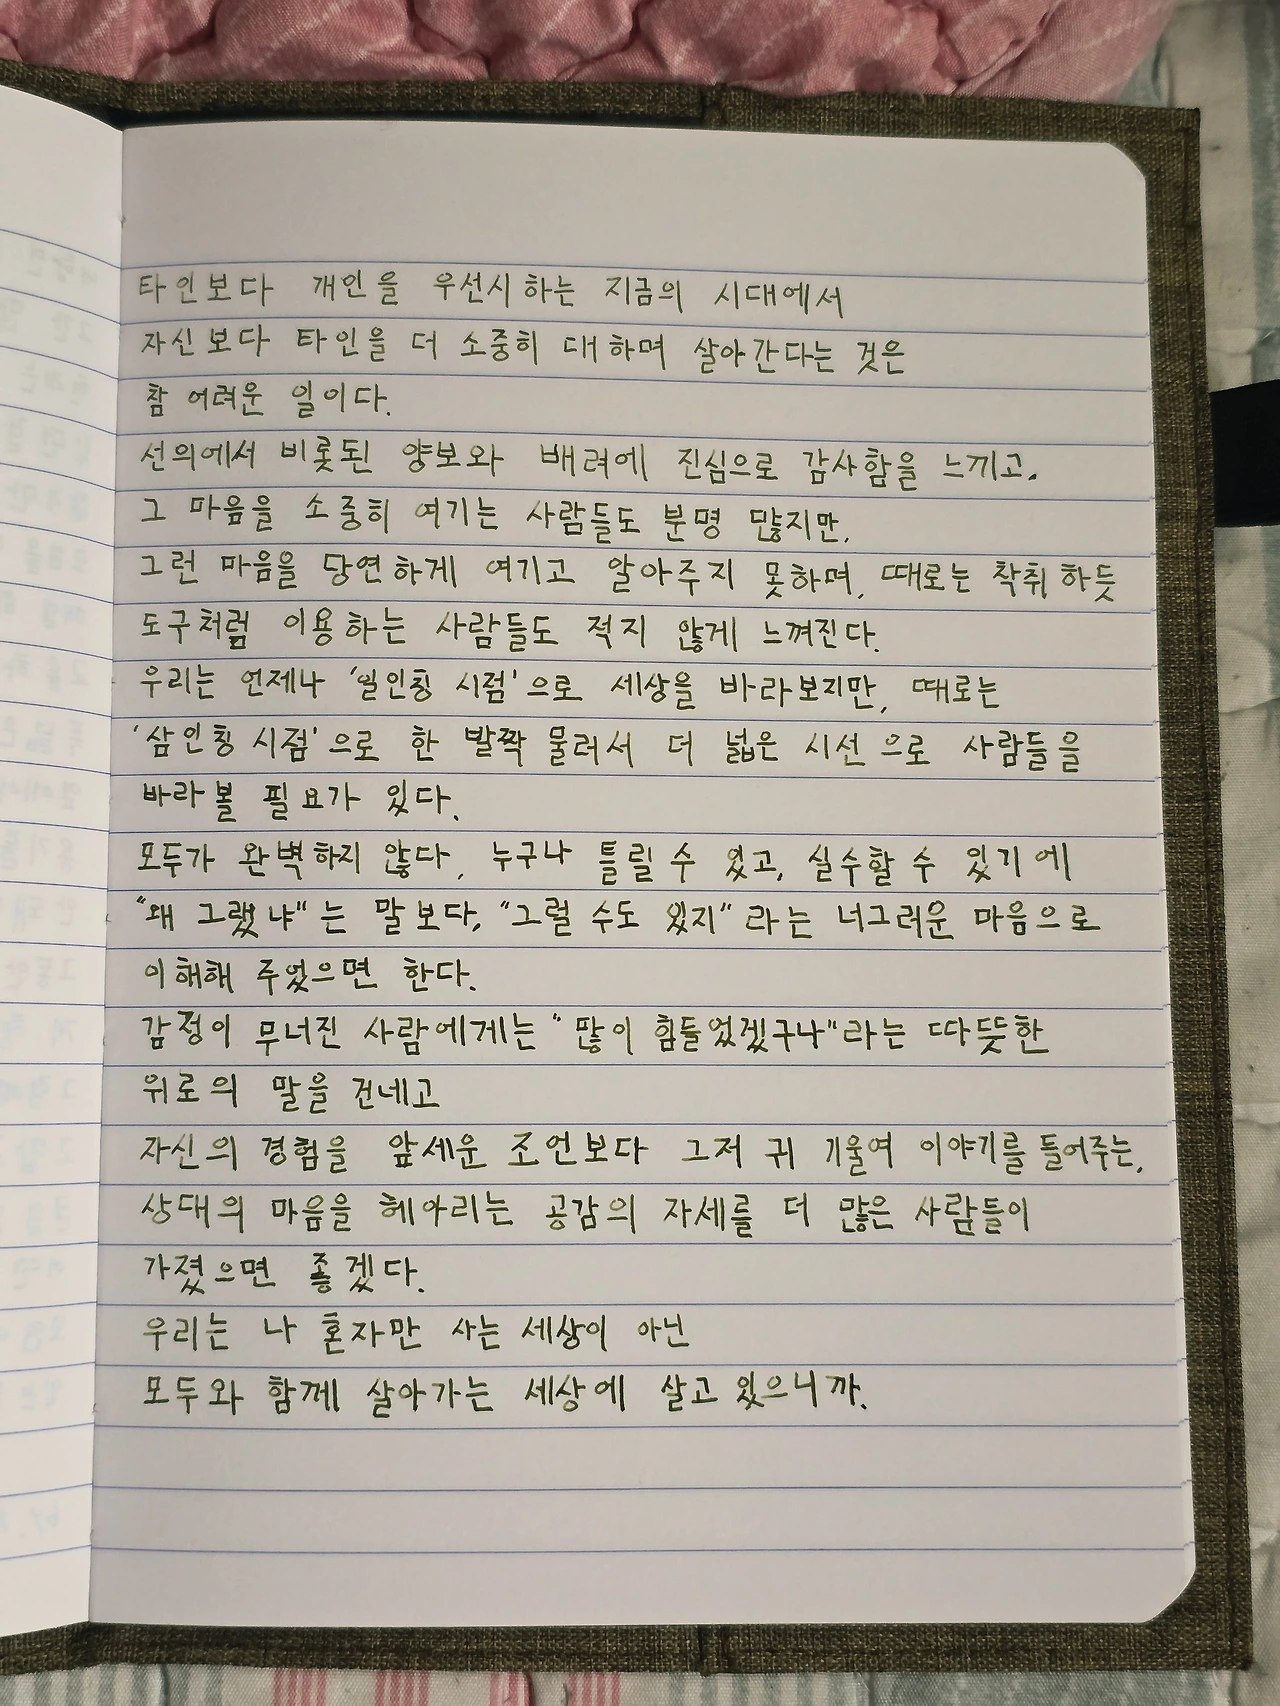 타인보다 개인을 우선시 하는 지금의 시대에서
자신보다 타인을 더 소중히 대하며 살아간다는 것은
참 어려운 일이다.
선의에서 비롯된 양보와 배려에 진심으로 감사함을 느끼고,
그 마음을 소중히 여기는 사람들도 분명 많지만,
그런 마음을 당연하게 여기고 알아주지 못하며, 때로는 착취하듯
도구처럼 이용하는 사람들도 적지 않게 느껴진다.
우리는 언제나 '일인칭 시점'으로 세상을 바라보지만, 때로는
'삼인칭 시점'으로 한 발짝 물러서 더 넓은 시선으로 사람들을
바라볼 필요가 있다.
모두가 완벽하지 않다, 누구나 틀릴 수 있고, 실수할 수 있기에
"왜 그랬냐"는 말보다, "그럴 수도 있지"라는 너그러운 마음으로
이해해 주었으면 한다.
감정이 무너진 사람에게는 "많이 힘들었겠구나"라는 따듯한
위로의 말을 건네고
자신의 경험을 앞세운 조언보다 그저 귀 기울여 이야기를 들어주는,
상대의 마음을 헤아리는 공감의 자세를 더 많은 사람들이
가졌으면 좋겠다.
우리는 나 혼자만 사는 세상이 아닌
모두와 함께 살아가는 세상에 살고 있으니까.